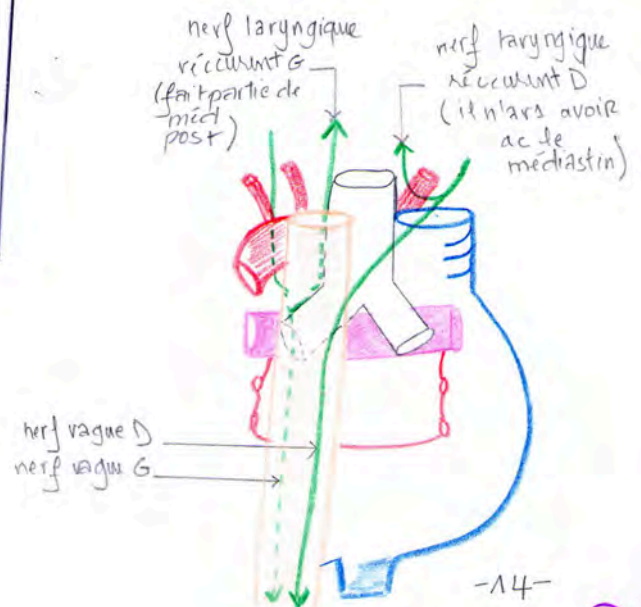 nerf laryngique
réccurent G
(fait partie de
méd
post)
nerf laryngique
réccurent D
(il n'ars avoir
ac le
médiastin)
nerf vague D
nerf vague G
-14-